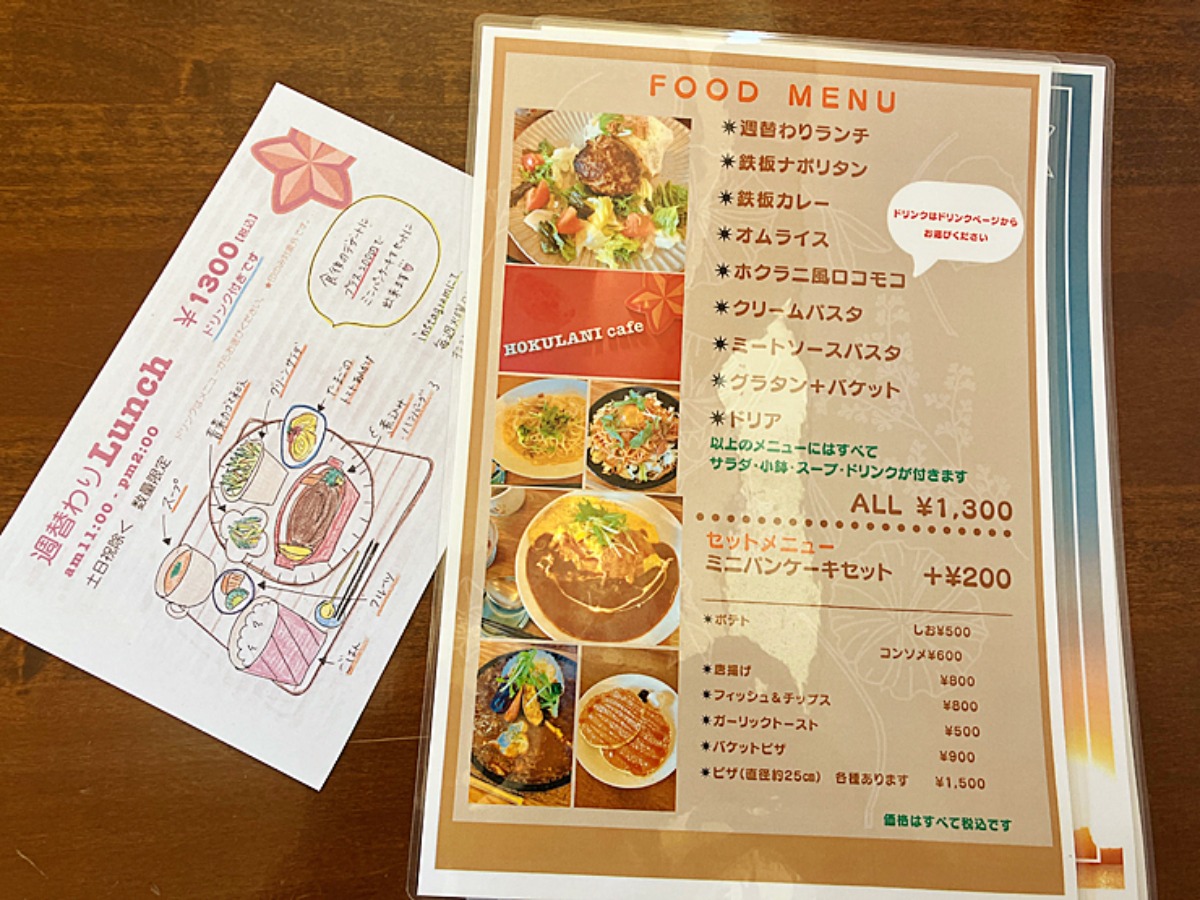 FOOD MENU
✷週替わりランチ
✷鉄板ナポリタン
✷鉄板カレー
✷オムライス
✷ホクラニ風ロコモコ
✷クリームパスタ
✷ミートソースパスタ
✷グラタン+バケット
✷ドリア
ドリンクはドリンクページから
お選びください
以上のメニューにはすべて
サラダ・小鉢・スープ・ドリンクが付きます
ALL ¥1,300
セットメニュー
ミニパンケーキセット +¥200
✷ポテト しお¥500
コンソメ¥600
✷唐揚げ ¥800
✷フィッシュ&チップス ¥800
✷ガーリックトースト ¥500
✷バケットピザ ¥900
✷ピザ(直径約25㎝) 各種あります ¥1,500
価格はすべて税込です
HOKULANI cafe
週替わりLunch
am11:00 - pm2:00
土日祝除く 数量限定
¥1300【税込】
ドリンク付きです
ドリンクはメニューからお選びください。
食後のデザートに
プラス200円で
ミニパンケーキをセットに
出来ます
instagramにて
グリーンサラダ
スープ
ごはん